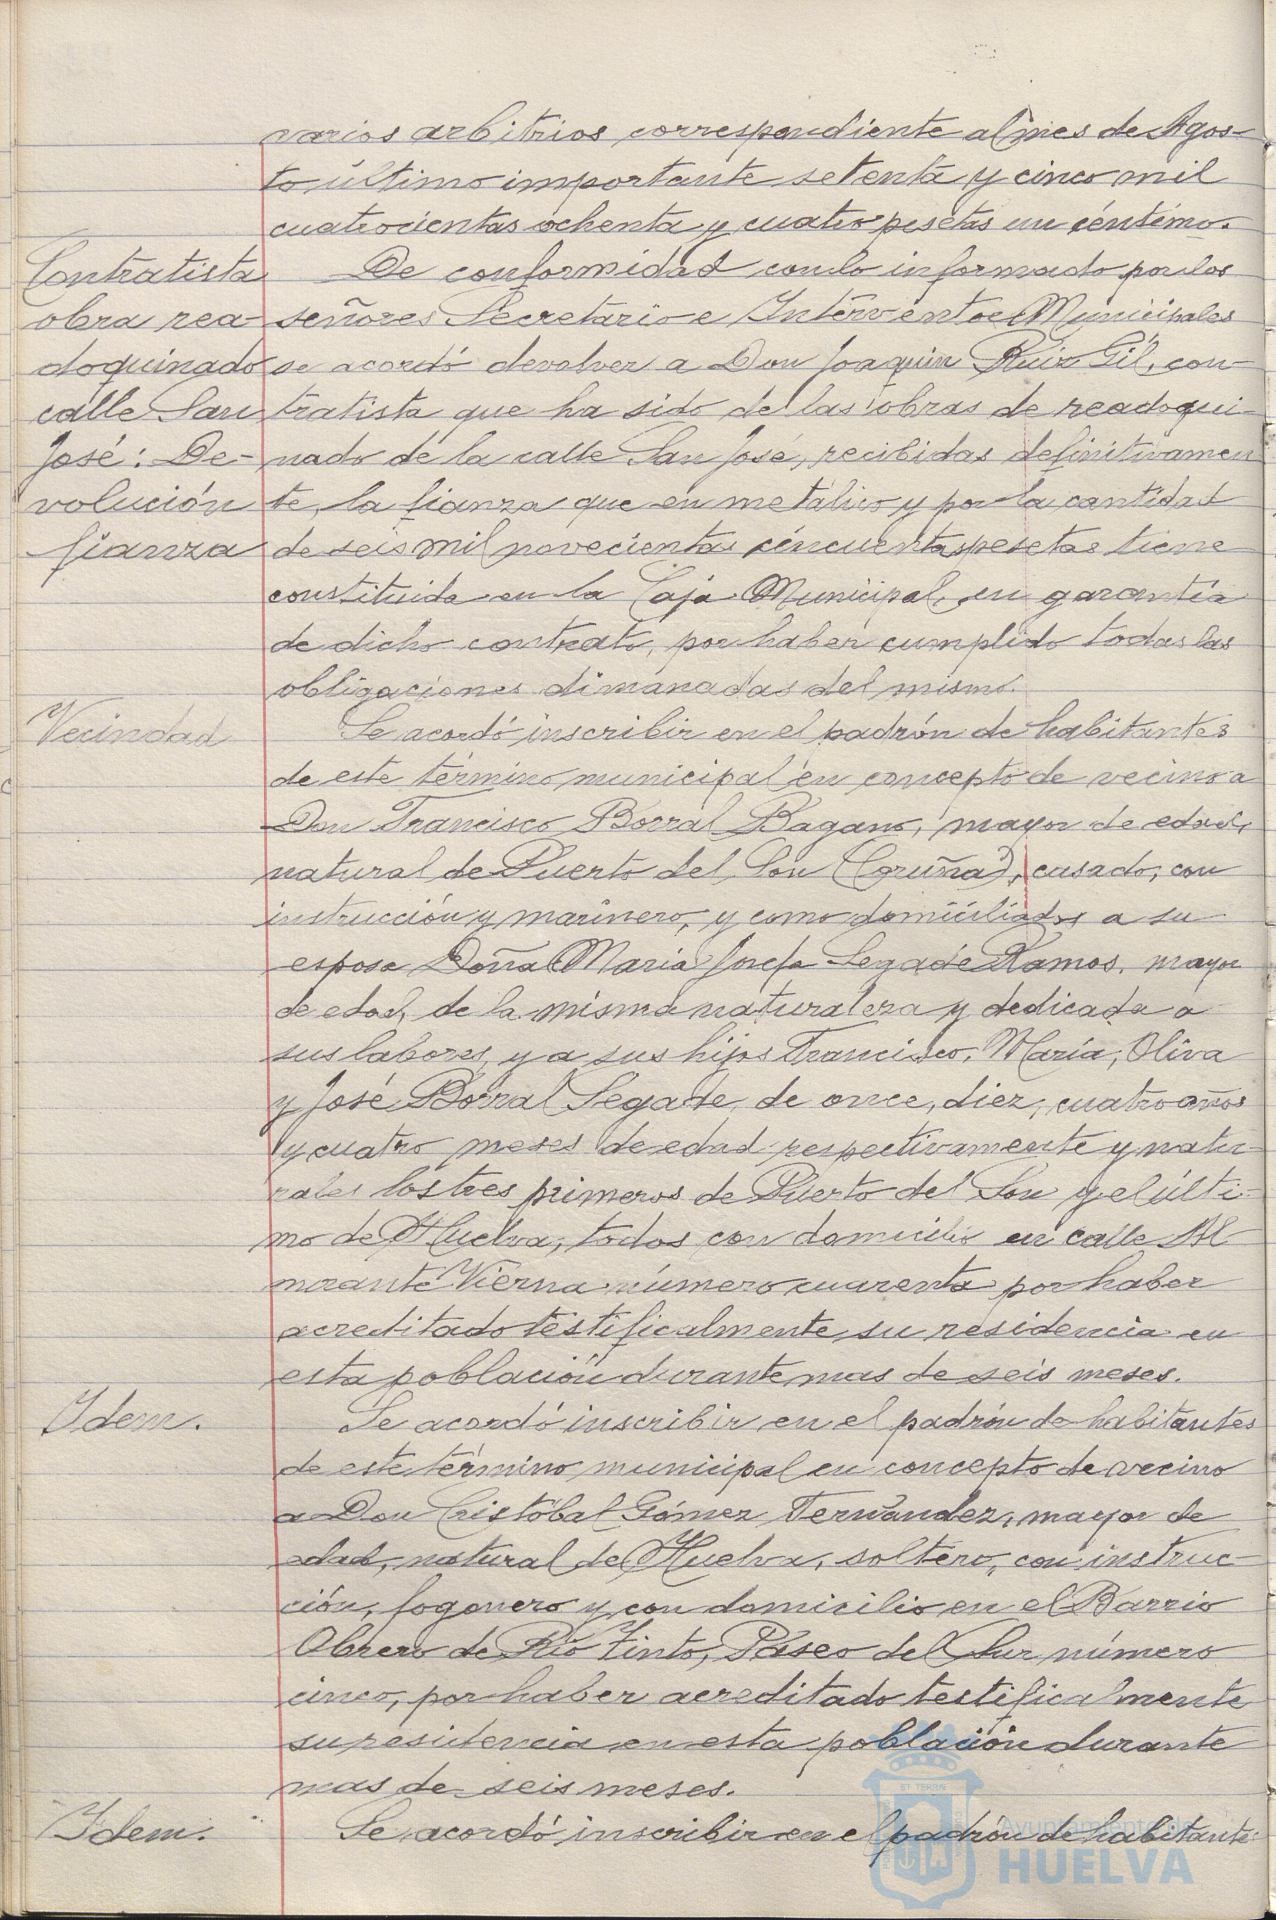 varios arbitrios correspondiente al mes de Agos-
to último importante setenta y cinco mil
cuatrocientas ochenta y cuatro pesetas un céntimo.
Contratista
obra rea-
doquinado
calle San
José: De-
volución
fianza
De conformidad con lo informado por los
señores Secretario e Interventor Municipales
se acordó devolver a Don Joaquin Ruiz Gil, con-
tratista que ha sido de las obras de readoqui-
nado de la calle San José, recibidas definitivamen
te, la fianza que en metálico y por la cantidad
de seis mil novecientas cincuenta pesetas tiene
constituida en la Caja Municipal, en garantía
de dicho contrato, por haber cumplido todas las
obligaciones dimanadas del mismo.
Vecindad
Se acordó inscribir en el padrón de habitantes
de este término municipal en concepto de vecino a
Don Francisco Borral Bagano, mayor de edad,
natural de Puerto del Son (Coruña), casado, con
instrucción y marinero, y como domiciliados a su
esposa Doña María Josefa Segade Ramos, mayor
de edad, de la misma naturaleza y dedicada a
sus labores, y a sus hijos Francisco, María, Oliva
y José Borral Segade, de once, diez, cuatro años
y cuatro meses de edad respectivamente y natu-
rales los tres primeros de Puerto del Son y el últi-
mo de Huelva, todos con domicilio en calle Al
mirante Vierna número cuarenta por haber
acreditado testificalmente su residencia en
esta población durante mas de seis meses.
Idem.
Se acordó inscribir en el padrón de habitantes
de este término municipal en concepto de vecino
a Don Cristóbal Gómez Fernández, mayor de
edad, natural de Huelva, soltero, con instruc-
ción, fogonero y con domicilio en el Barrio
Obrero de Río Tinto, Paseo del Sur número
cinco, por haber acreditado testificalmente
su residencia en esta población durante
mas de seis meses.
Idem.
Se acordó inscribir en el padrón de habitante
Ayuntamiento de
HUELVA